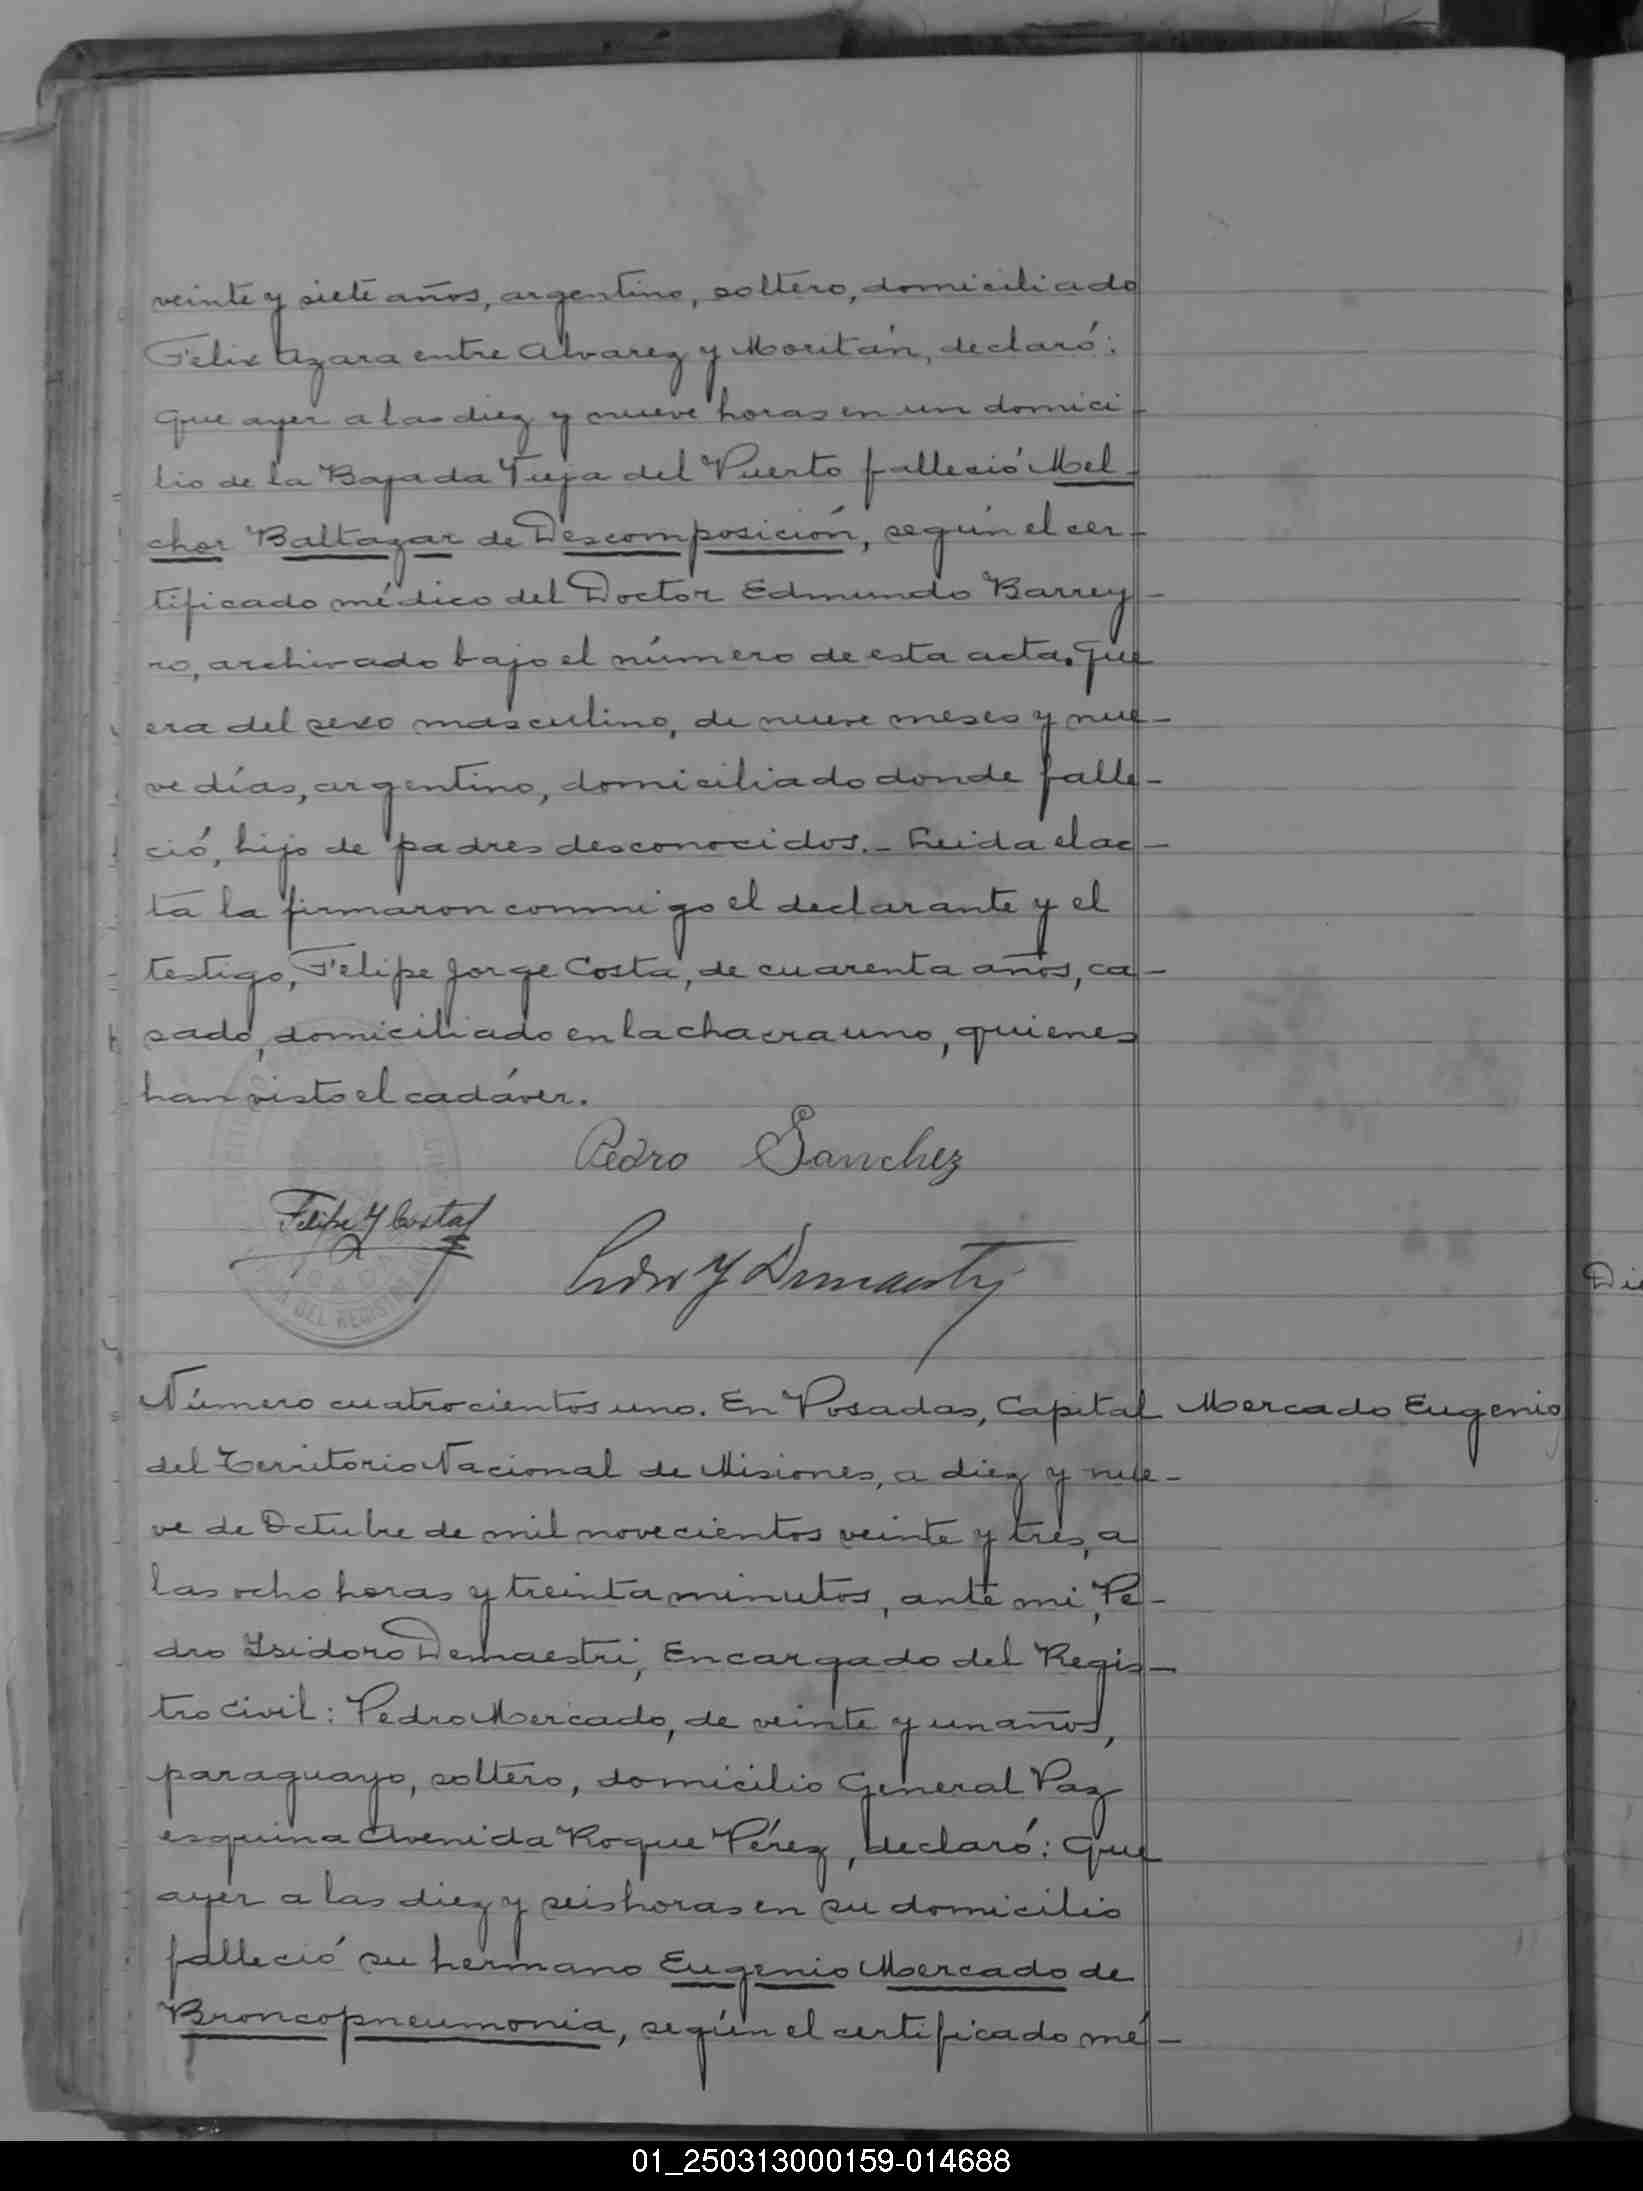 veinte y siete años, argentino, soltero, domiciliado
Felix Azara entre Alvarez y Moritán, declaró:
Que ayer a las diez y nueve horas en un domici-
lio de la Bajada Vieja del Puerto falleció Mel-
chor Baltazar de Descomposición, según el cer-
tificado médico del Doctor Edmundo Barrey-
ro, archivado bajo el número de esta acta. Que
era del sexo masculino, de nueve meses y nue-
ve días, argentino, domiciliado donde falle-
ció, hijo de padres desconocidos.- Leida el ac-
ta la firmaron conmigo el declarante y el
testigo, Felipe Jorge Costa, de cuarenta años, ca-
sado, domiciliado en la chacra uno, quienes
han visto el cadáver.
Pedro Sanchez
Felipe J Costa
Pedro Y Demaestri
DEL REGISTRO
Número cuatrocientos uno. En Posadas, Capital
Mercado Eugenio
del Territorio Nacional de Misiones, a diez y nue-
ve de Octubre de mil novecientos veinte y tres, a
las ocho horas y treinta minutos, ante mi, Pe-
dro Isidoro Demaestri, Encargado del Regis-
tro Civil: Pedro Mercado, de veinte y un años,
paraguayo, soltero, domicilio General Paz
esquina Avenida Roque Pérez, declaró: Que
ayer a las diez y seis horas en su domicilio
falleció su hermano Eugenio Mercado de
Broncopneumonia, según el certificado mé-
01_250313000159-014688